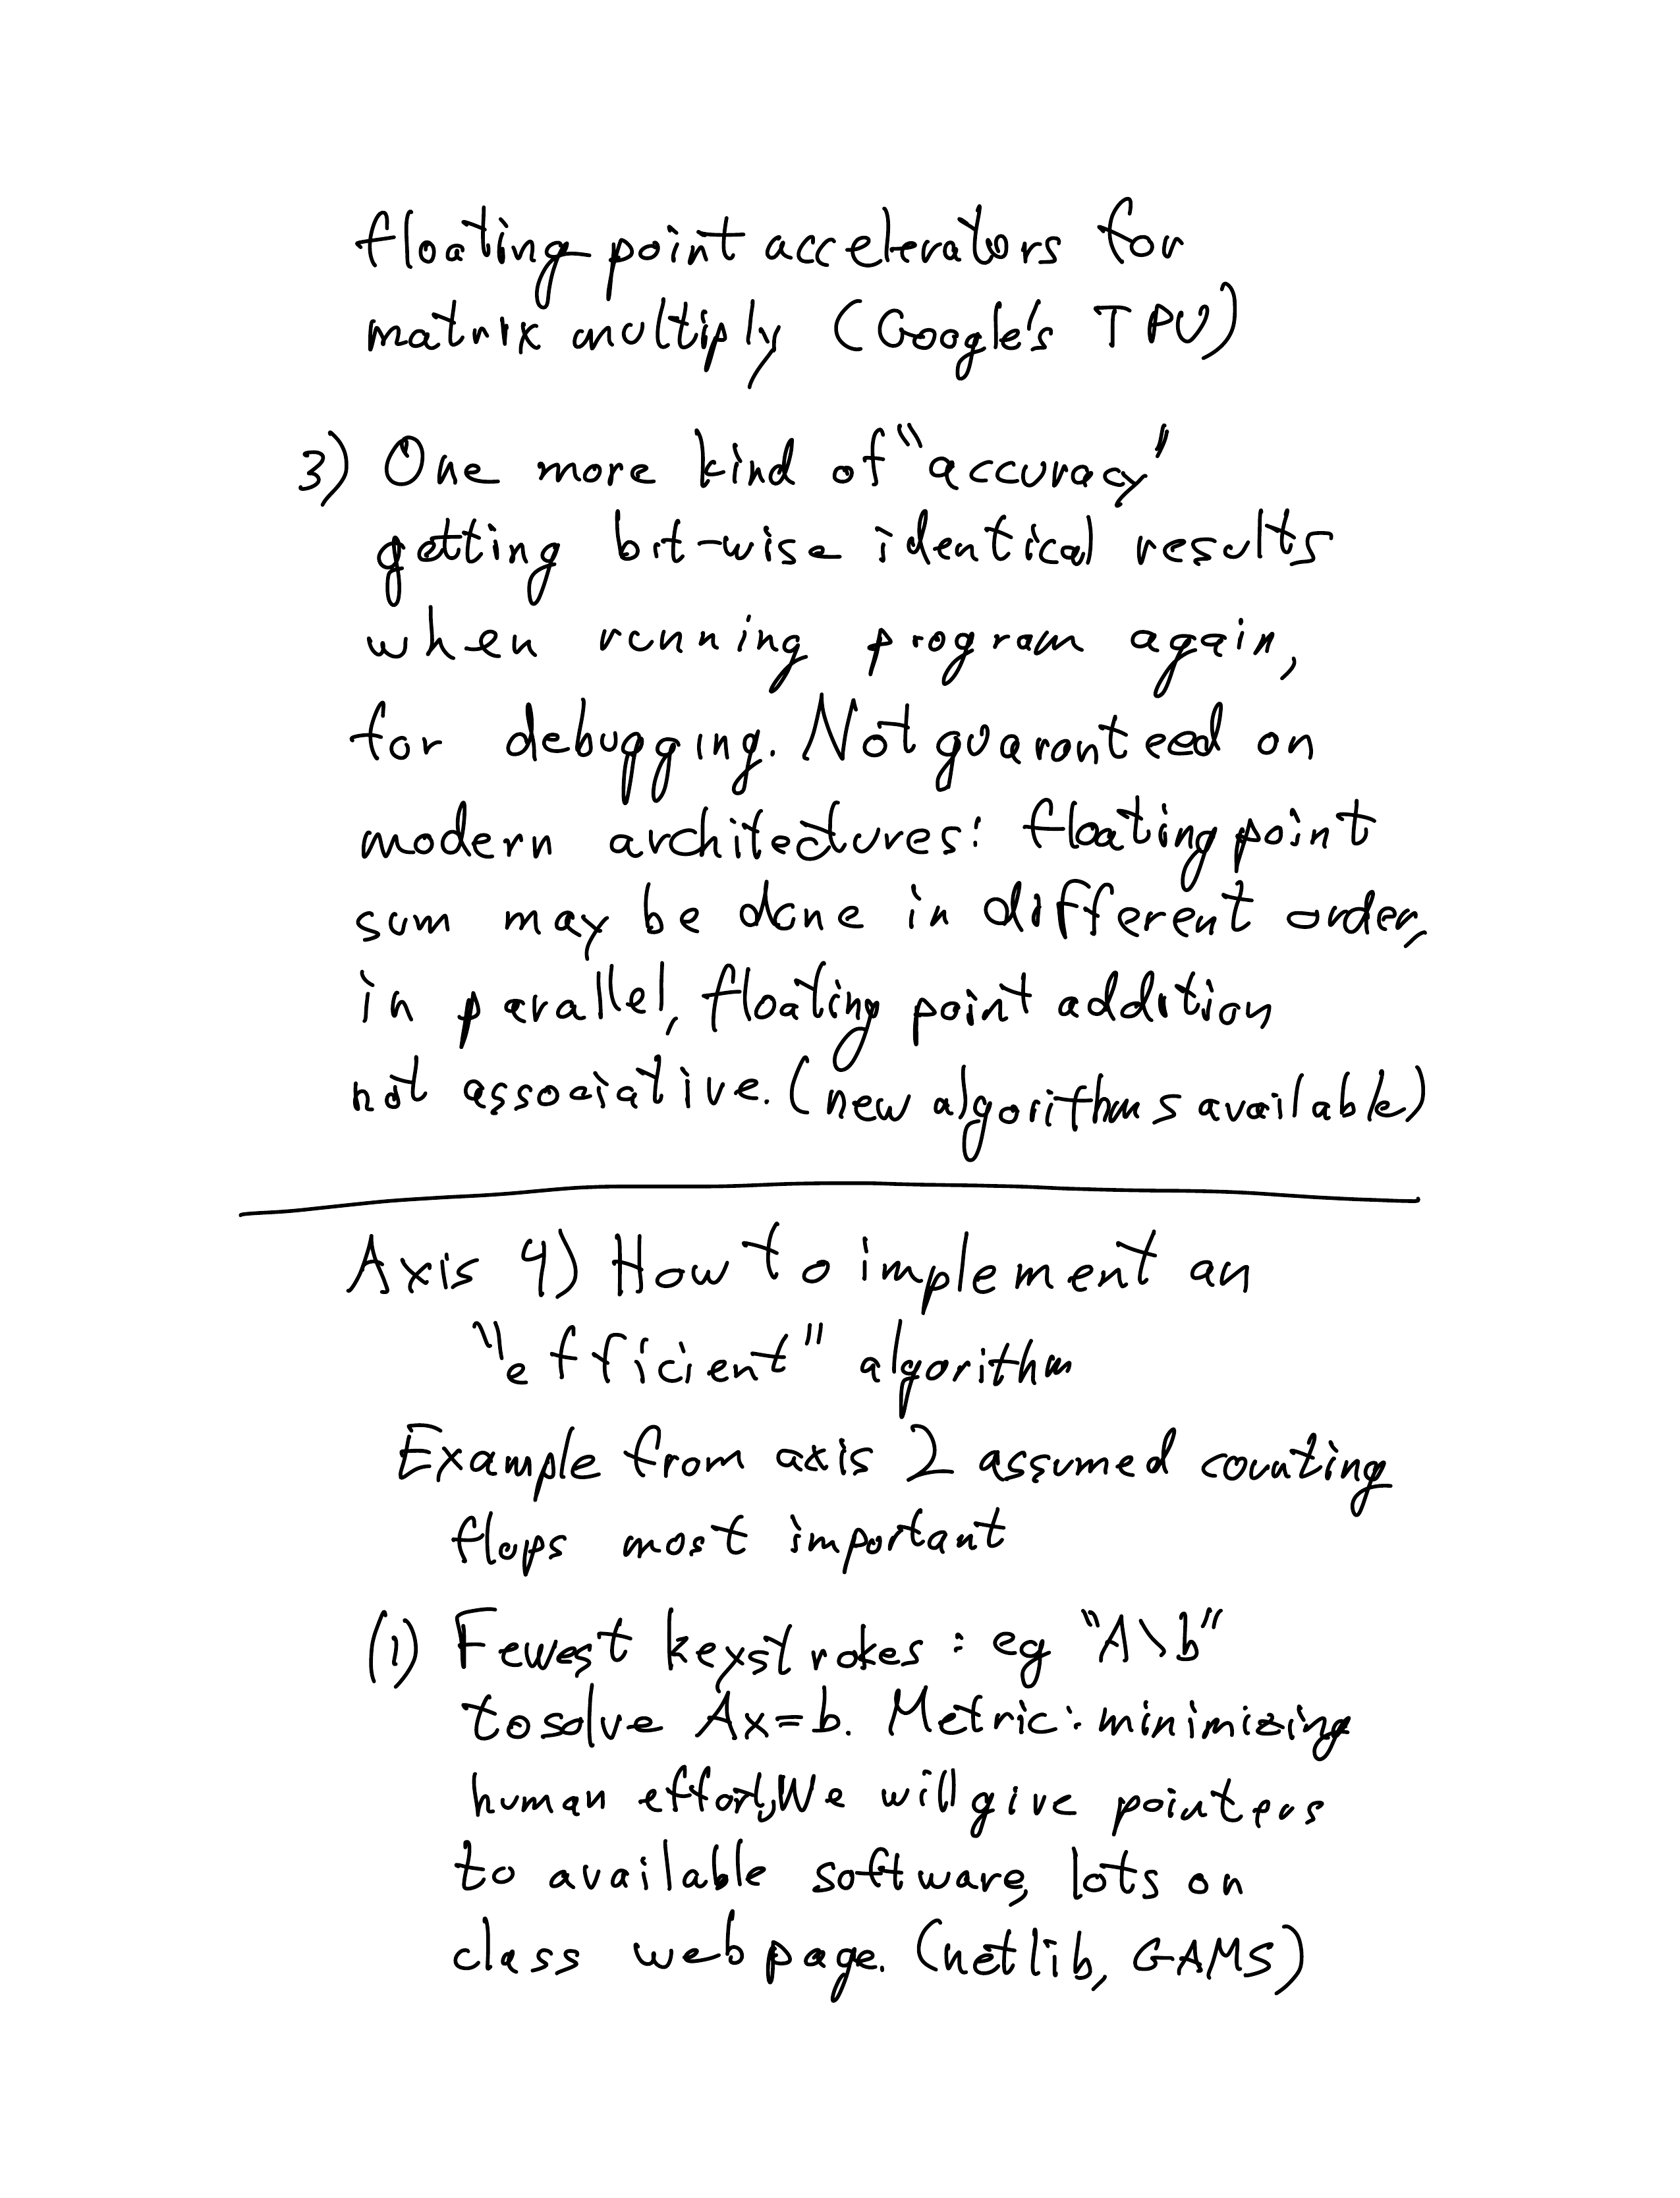 floating point accelerators for
matrix multiply (Google's TPU)
3) One more kind of "accuracy"
getting bit-wise identical results
when running program again,
for debugging. Not guaranteed on
modern architectures: floating point
sum may be done in different order,
in parallel, floating point addition
not associative. (new algorithms available)
Axis 4) How to implement an
"efficient" algorithm
Example from axis 2 assumed counting
flops most important
(1) Fewest keystrokes: eg "A\b"
to solve Ax=b. Metric: minimizing
human effort, We will give pointers
to available software, lots on
class webpage. (netlib, GAMS)